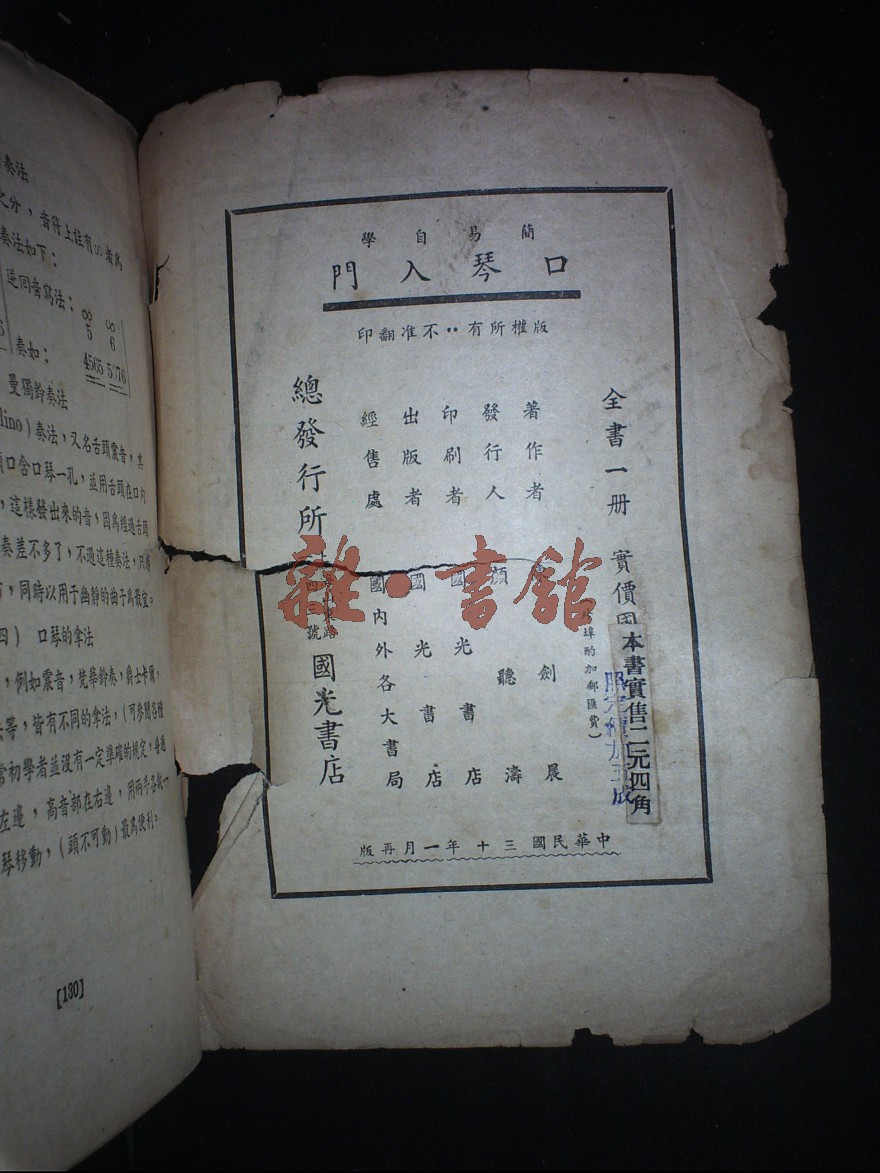 簡易自學
口琴入門
版權所有··不准翻印
全書一册 實價國
埠酌加郵匯費)
本書實售二元四角
著作者 劍晨
發行人 顏聽濤
印刷者 國光書店
出版者 國光書店
經售處 國內外各大書局
總發行所 國光書店
中華民國三十年一月再版
雜·書館
奏法
之分,音符上註有∞者爲
奏法如下:
逆回音寫法:∞ ∞
5 6
奏如:4565 5676
曼獨鈴奏法
lino)奏法,又名舌頭震音,其
口含口琴一孔,並用舌頭在口內
,這樣發出來的音,因爲經過舌頭
奏差不多了,不過這種奏法,只
,同時以用于幽静的曲子爲最宜。
四) 口琴的拿法
,例如震音,梵華鈴奏,爵士卡爾,
等,皆有不同的拿法,(可參閱各種
常初學者並沒有一定準確的規定,普通
左邊,高音部在右邊,用兩手
琴移動,(頭不可動)最爲便利。
【130】